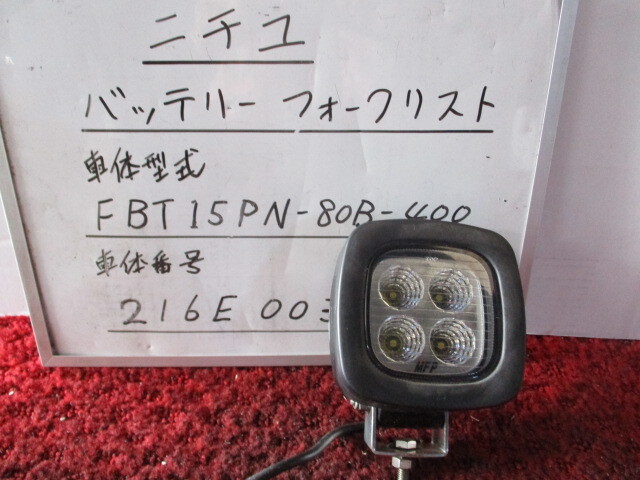 ニチユ
バッテリー フォークリスト
車体型式
FBT15PN-80B-400
車体番号
216E 003
TOP
MFP